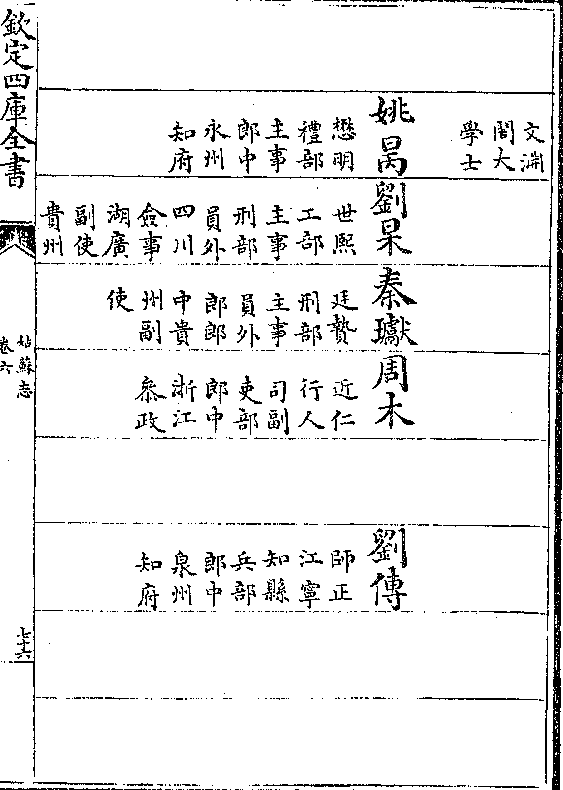 文淵
閣大
學士
姚昺
懋明
禮部
主事
郎中
永州
知府
劉杲
世熙
工部
主事
刑部
員外
四川
僉事
湖廣
副使
貴州
秦瓛
廷贄
刑部
主事
員外
郎郎
中貴
州副
使
周木
近仁
行人
司副
吏部
郎中
浙江
叅政
劉傳
師正
江寧
知縣
兵部
郎中
泉州
知府
欽定四庫全書
姑蘇志
卷六
七十六